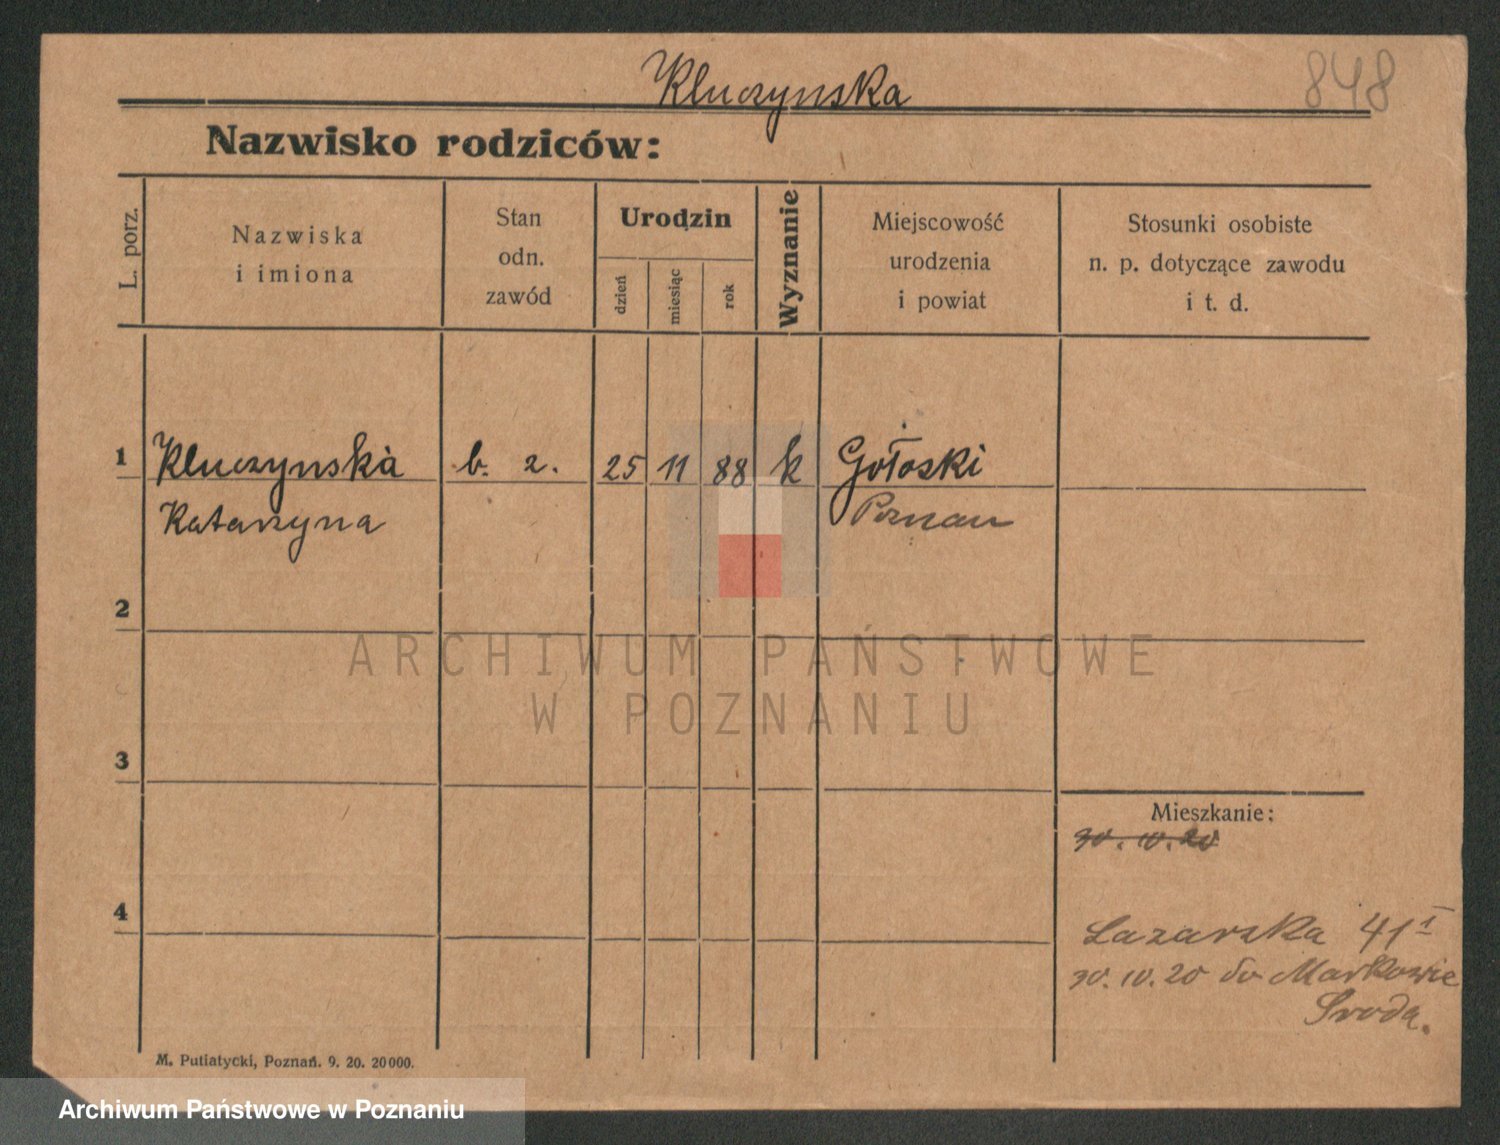 Kluczynska
848
Nazwisko rodziców:
L. porz.
Nazwiska
i imiona
Stan
odn.
zawód
Urodzin
dzień
miesiąc
rok
Wyznanie
Miejscowość
urodzenia
i powiat
Stosunki osobiste
n. p. dotyczące zawodu
i t. d.
1 Kluczynska b. z. 25 11 88 k Gołoski
Katarzyna Poznan
2
ARCHIWUM PAŃSTWOWE
W POZNANIU
3
Mieszkanie:
30. 10. 20
4
Lazarska 41 I
30. 10. 20 do Markowie
Sroda.
M. Putiatycki, Poznań. 9. 20. 20000.
Archiwum Państwowe w Poznaniu